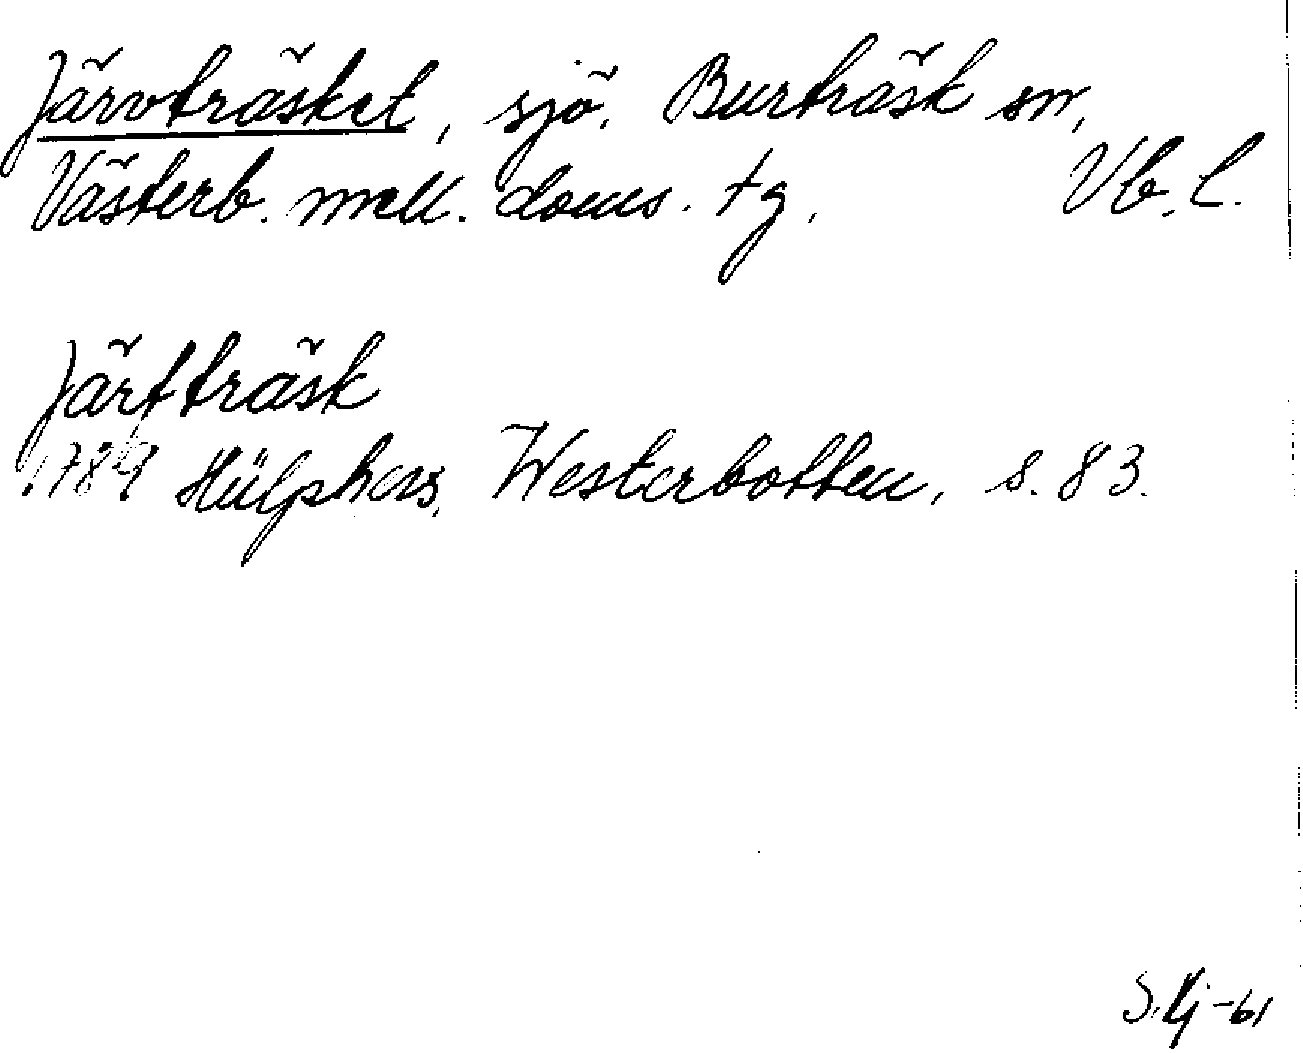 Järvträsket, sjö. Burträsk sn,
Västerb. mell. doms. tg. Vb. l.
Järfträsk
1789 Hülphers, Westerbotten, s. 83.
-61